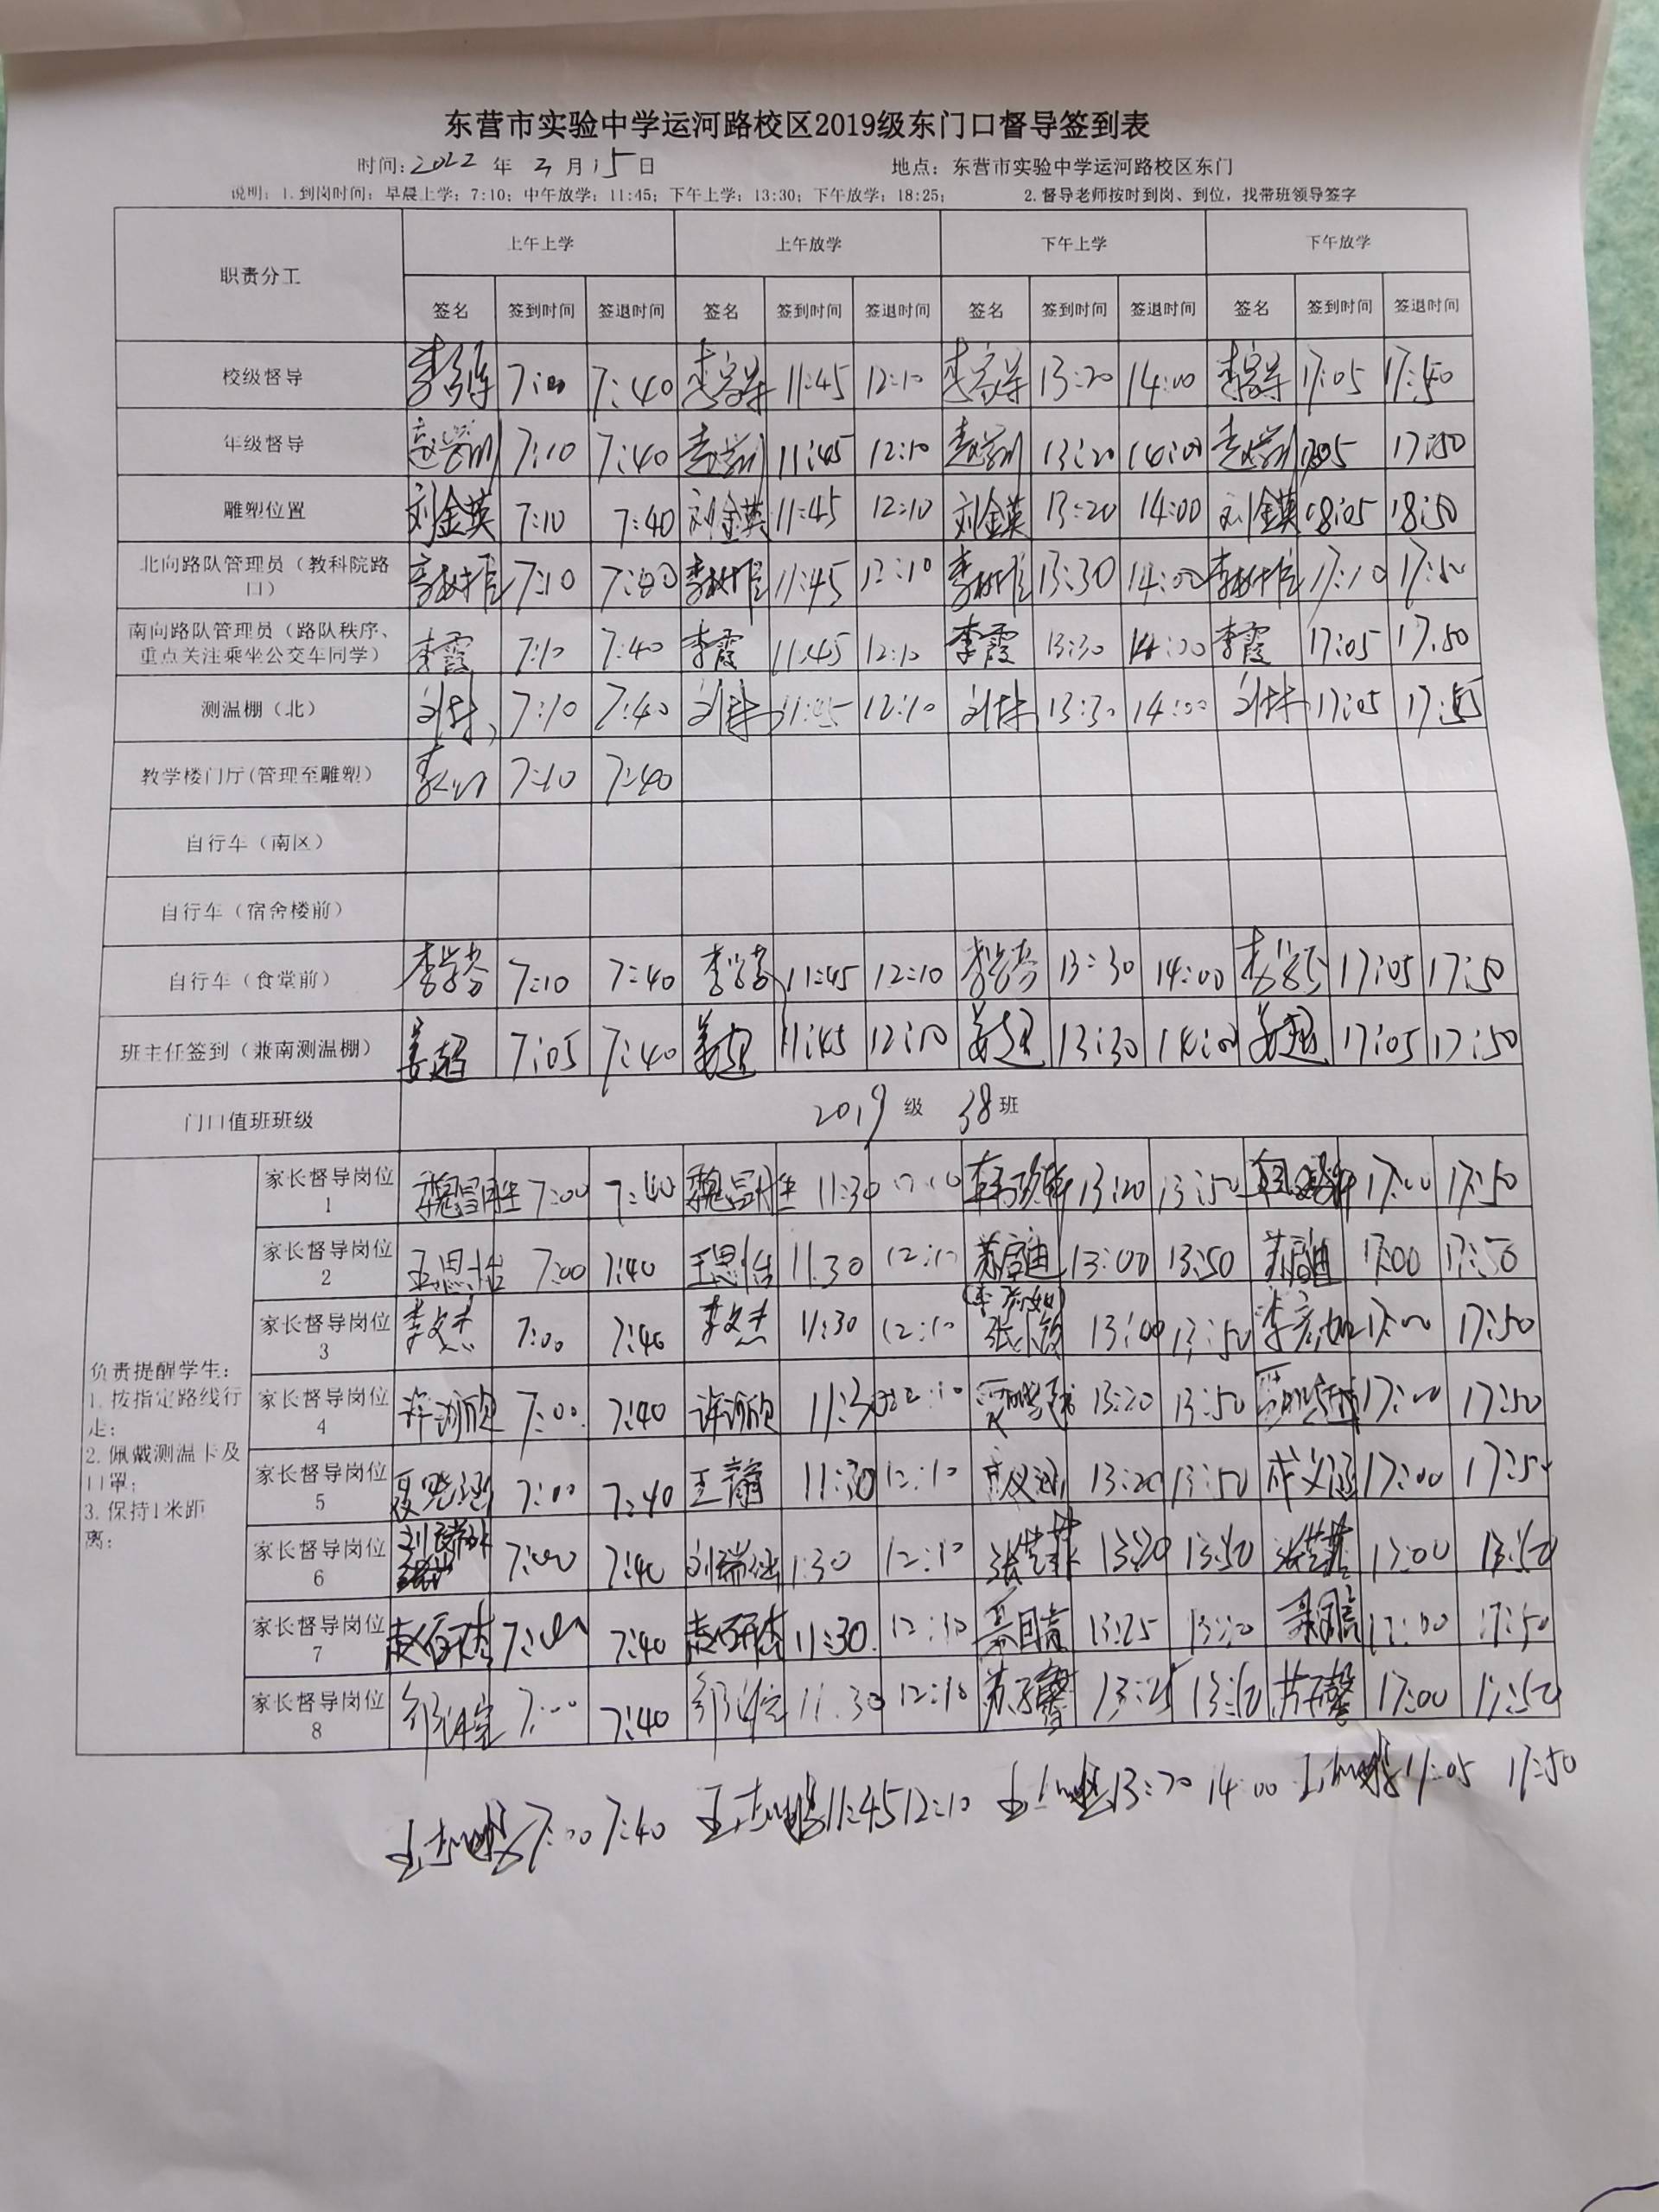 东营市实验中学运河路校区2019级东门口督导签到表
时间:2022 年 3 月 15 日 地点：东营市实验中学运河路校区东门
说明：1.到岗时间：早晨上学：7:10；中午放学：11:45；下午上学：13:30；下午放学：18:25； 2.督导老师按时到岗、到位，找带班领导签字
职责分工 上午上学 上午放学 下午上学 下午放学
签名 签到时间 签退时间 签名 签到时间 签退时间 签名 签到时间 签退时间 签名 签到时间 签退时间
校级督导 7:40 11:45 12:10 13:20 14:00 17:05 17:50
年级督导 7:10 7:40 11:45 12:10 13:20 14:00 17:50
雕塑位置 刘金英 7:10 7:40 刘金英 11:45 12:10 刘金英 13:20 14:00 刘金英 18:05 18:50
北向路队管理员（教科院路口） 7:10 11:45 12:10 13:30 14:00 17:10 17:50
南向路队管理员（路队秩序、重点关注乘坐公交车同学） 李霞 7:10 7:40 李霞 11:45 12:10 李霞 13:30 14:00 李霞 17:05 17.50
测温棚（北） 7:10 7:40 11:45 12:10 13:30 14:00 17:05
教学楼门厅(管理至雕塑) 7:10 7:40
自行车（南区）
自行车（宿舍楼前）
自行车（食堂前） 李学芬 7:10 7:40 李学芬 11:45 12:10 李学芬 13:30 14:00 李学芬 17:05 17:50
班主任签到（兼南测温棚） 姜超 7:05 7:40 姜超 11:45 12:10 姜超 13:30 14:00 姜超 17:05 17:50
门口值班班级 2019 级 38 班
负责提醒学生：
1.按指定路线行走；
2.佩戴测温卡及口罩；
3.保持1米距离；
家长督导岗位1 魏昌胜 7:00 7:40 魏昌胜 11:30 12:10 13:20 13:50 17:00 17:50
家长督导岗位2 王思怡 7:00 7:40 王思怡 11.30 12:10 苏启迪 13:00 13:50 苏启迪 17:00 17:50
家长督导岗位3 李文杰 7:00 7:40 李文杰 11:30 12:10 13:00 13:50 李彦如 17:00 17:50
家长督导岗位4 许渝欣 7:00 7:40 许渝欣 11:30 12:10 13:20 13:50 17:00 17:50
家长督导岗位5 7:00 7:40 王静 11:30 12:10 13:20 13:50 成义涵 17:00 17:50
家长督导岗位6 7:00 7:40 12:10 张艺菲 13:20 13:50 张艺菲 17:00
家长督导岗位7 赵研杰 7:00 7:40 赵研杰 11:30 12:10 13:25 17:00 17:50
家长督导岗位8 7:00 7:40 11.30 12:10 苏子馨 13:25 13:50 苏子馨 17:00 17:50
7:00 7:40 11:45 12:10 13:20 14:00 17:05 17:50